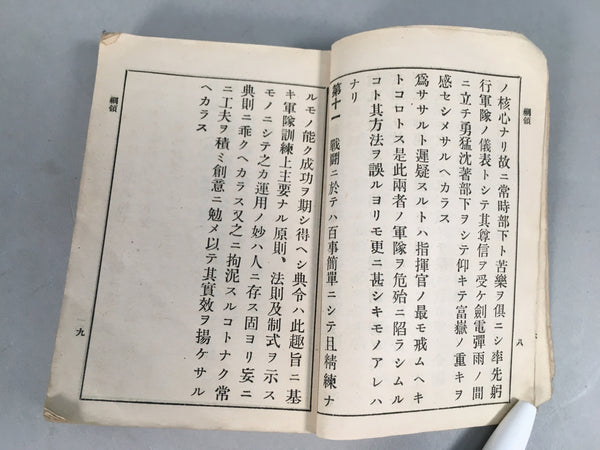 綱領
八
ノ核心ナリ故ニ常時部下ト苦樂ヲ倶ニシ率先躬
行軍隊ノ儀表トシテ其尊信ヲ受ケ劍電彈雨ノ間
ニ立チ勇猛沈著部下ヲシテ仰キテ富嶽ノ重キヲ
感セシメサルヘカラス
爲ササルト遲疑スルトハ指揮官ノ最モ戒ムヘキ
トコロトス是此兩者ノ軍隊ヲ危殆ニ陷ラシムル
コト其方法ヲ誤ルヨリモ更ニ甚シキモノアレハ
ナリ
第十一 戰鬪ニ於テハ百事簡單ニシテ且精練ナ
ルモノ能ク成功ヲ期シ得ヘシ典令ハ此趣旨ニ基
キ軍隊訓練上主要ナル原則、法則及制式ヲ示ス
モノニシテ之カ運用ノ妙ハ人ニ存ス固ヨリ妄ニ
典則ニ乖クヘカラス又之ニ拘泥スルコトナク常
ニ工夫ヲ積ミ創意ニ勉メ以テ其實效ヲ揚ケサル
ヘカラス
綱領
九